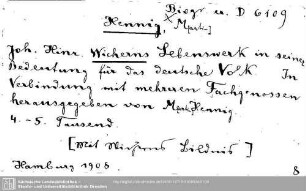 Biogr. u. D 6109
Hennig, Martin]
Joh. Hinr. Wicherns Lebenswerk in seiner
Bedeutung für das deutsche Volk. In
Verbindung mit mehreren Fachgenossen
herausgegeben von Martin Hennig.
4.-5. Tausend.
[Mit Wicherns Bildnis]
Hamburg 1908
8